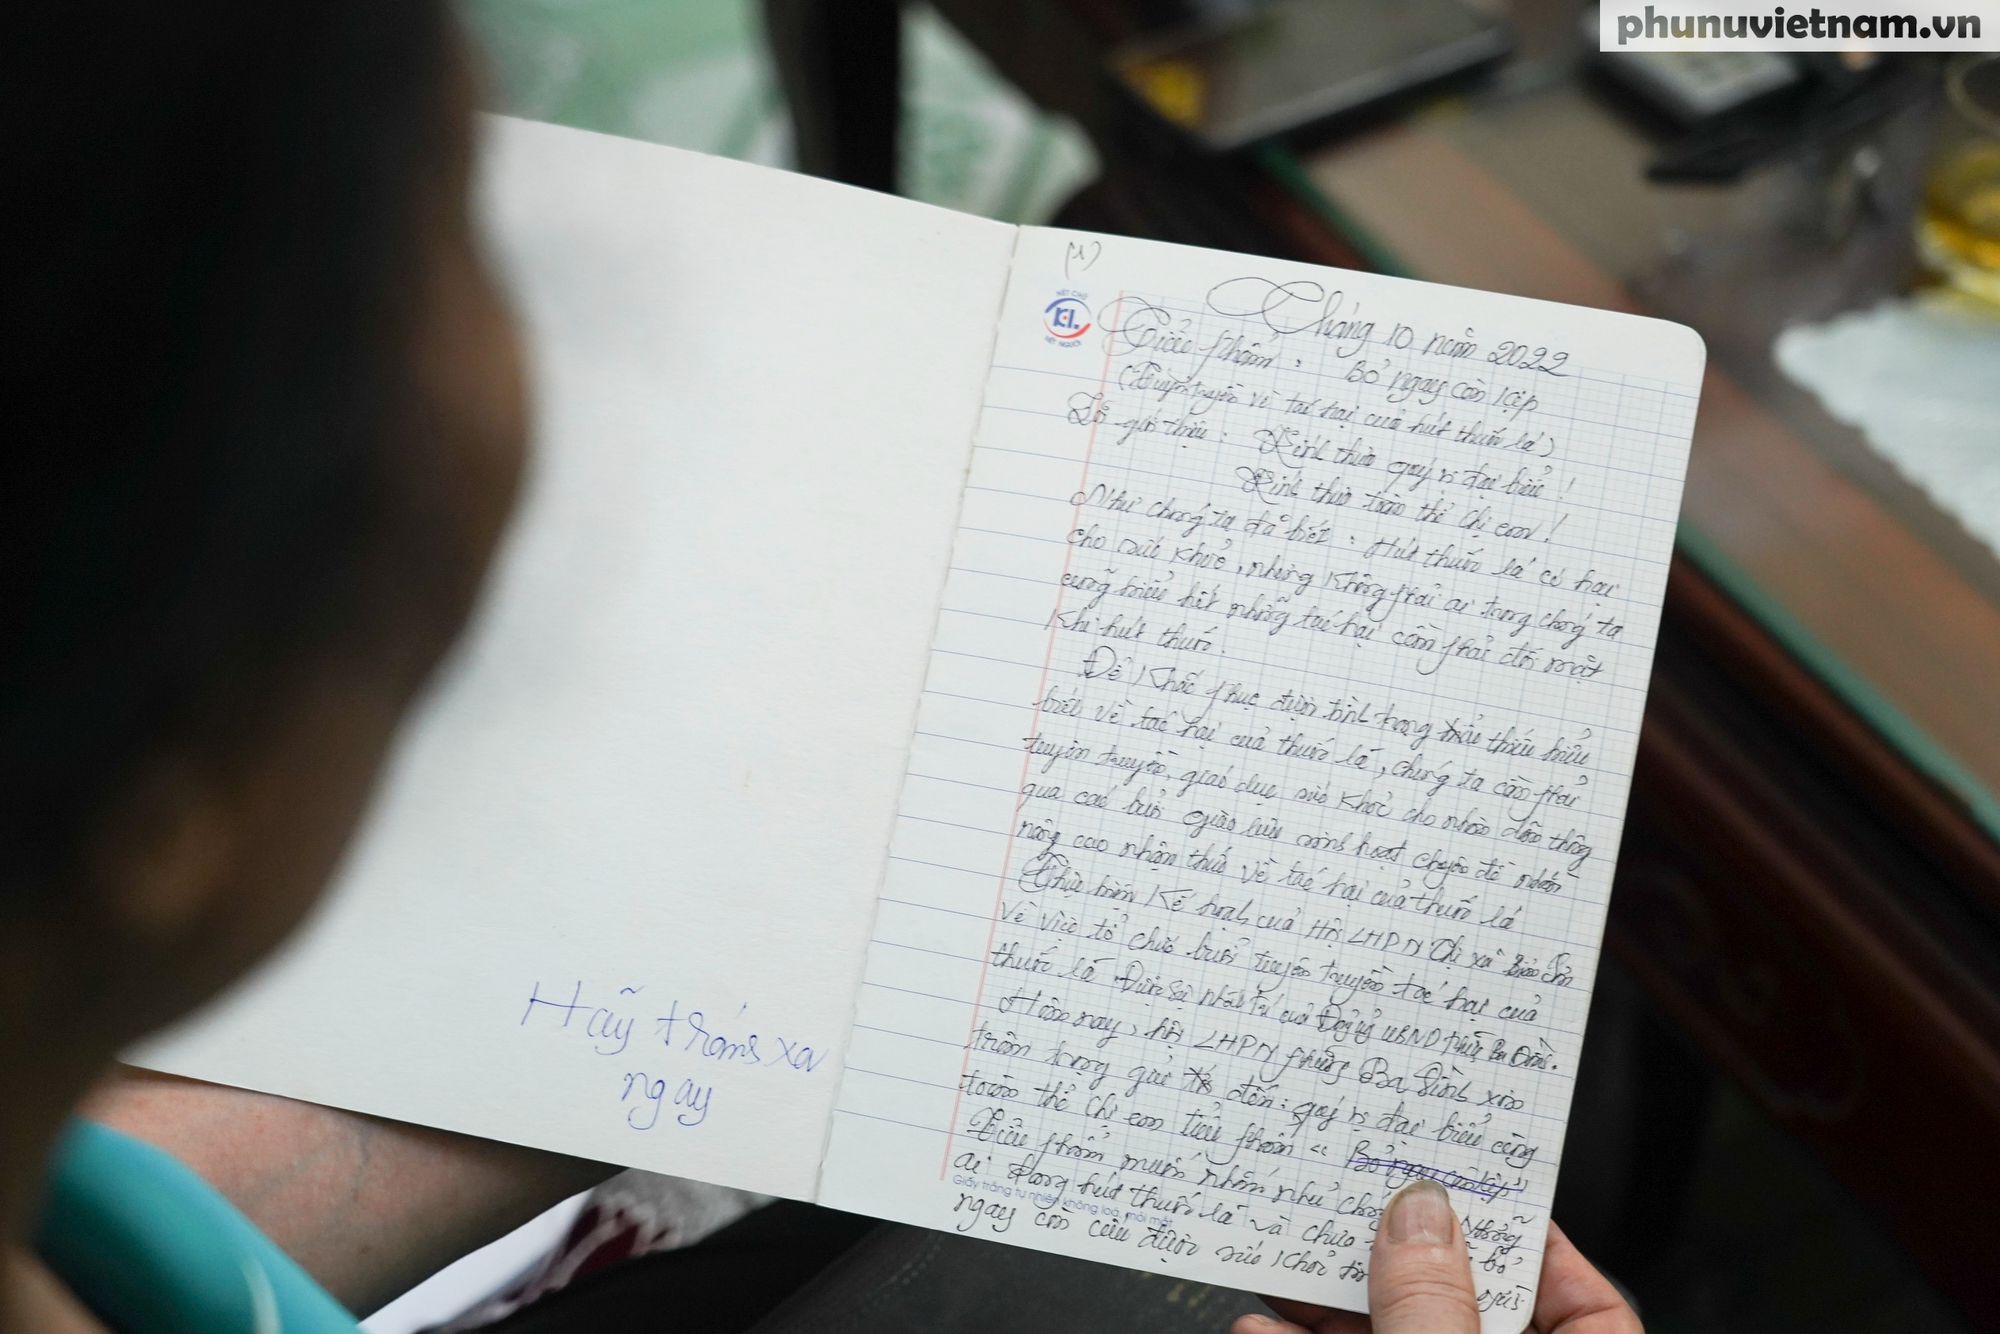 phunuvietnam.vn
(1)
NÉT CHỮ
K.I.
NẾT NGƯỜI
Tháng 10 năm 2022
Tiểu phẩm: Bỏ ngay còn kịp
(Tuyên truyền về tác hại của hút thuốc lá)
Lời giới thiệu: Kính thưa quý vị đại biểu!
Kính thưa toàn thể chị em!
Như chúng ta đã biết: Hút thuốc lá có hại
cho sức khoẻ, nhưng không phải ai trong chúng ta
cũng hiểu hết những tác hại cần phải đối mặt
khi hút thuốc.
Để khắc phục được tình trạng thiếu hiểu
biết về tác hại của thuốc lá, chúng ta cần phải
tuyên truyền, giáo dục sức khoẻ cho nhân dân thông
qua các buổi giao lưu sinh hoạt chuyên đề nhằm
nâng cao nhận thức về tác hại của thuốc lá
Thực hiện kế hoạch của Hội LHPN Thị xã Bỉm Sơn
về việc tổ chức buổi tuyên truyền tác hại của
thuốc lá. Được sự nhất trí của Đảng uỷ UBND phường Ba Đình.
Hôm nay, hội LHPN phường Ba Đình xin
trân trọng gửi đến: quý vị đại biểu cùng
toàn thể chị em tiểu phẩm " Bỏ ngay còn kịp"
Tiểu phẩm muốn nhắn như chúng những
ai đang hút thuốc lá và chưa bỏ
Giấy trắng tự nhiên không loá, mỏi mắt
ngay còn cứu được sức khoẻ
Hãy tránh xa
ngay